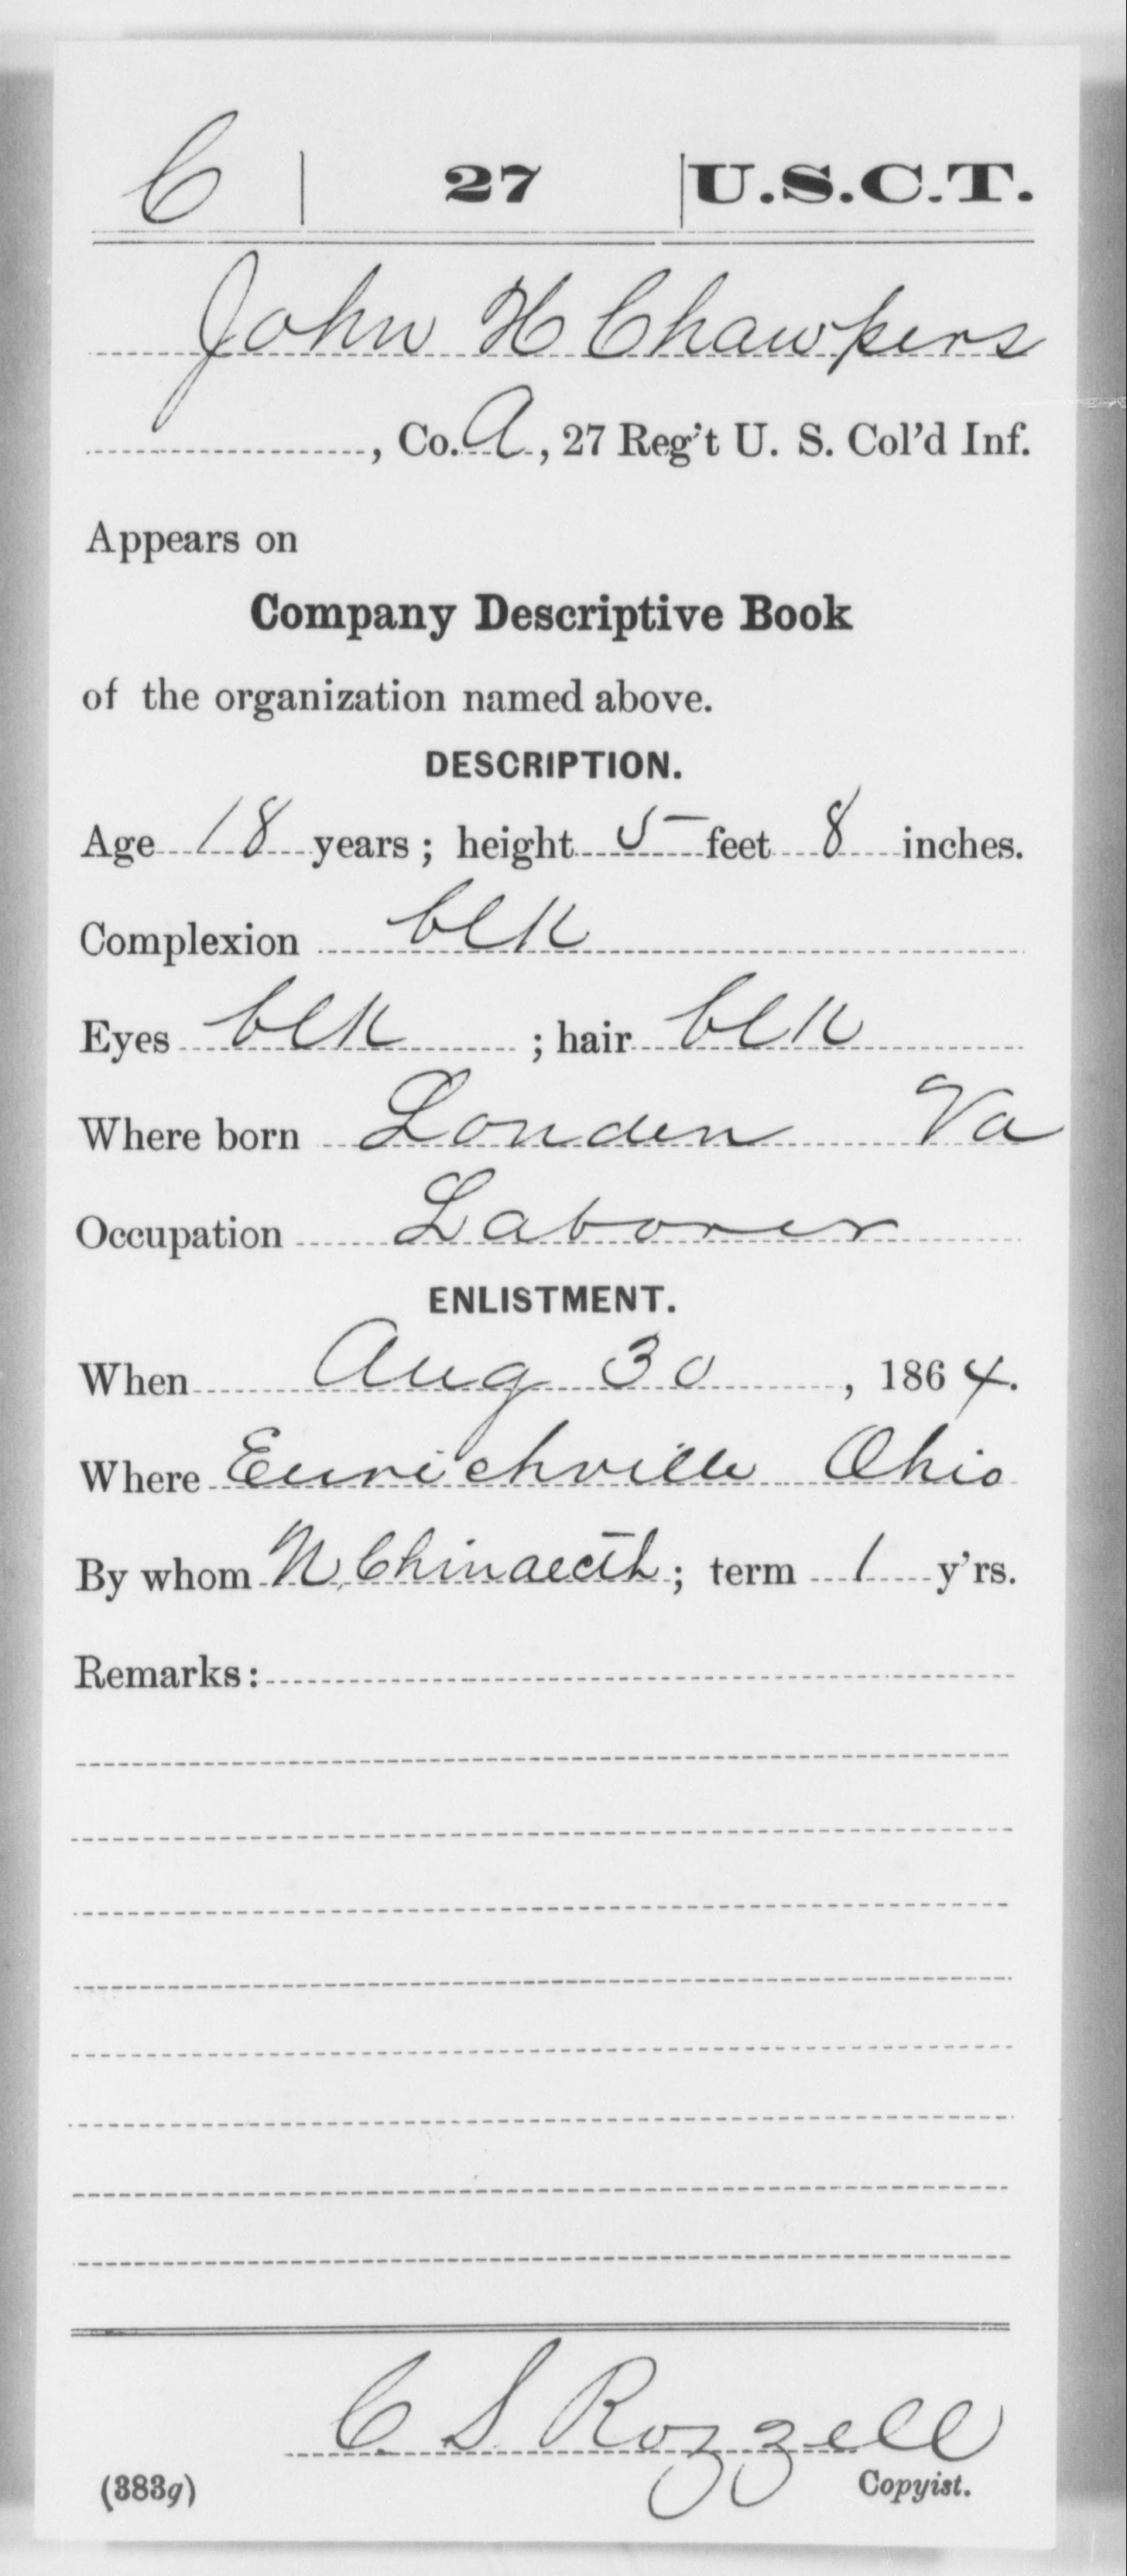 C | 27 | U.S.C.T.
John H Chawkers
, Co. A, 27 Reg't U. S. Col'd Inf.
Appears on
Company Descriptive Book
of the organization named above.
DESCRIPTION.
Age 18 years; height 5 feet 8 inches.
Complexion blk
Eyes blk ; hair blk
Where born Louden Va
Occupation Laborer
ENLISTMENT.
When Aug 30, 1864.
Where Ohio
By whom N. ; term 1 y'rs.
Remarks:
C S Rozzell
(383g) Copyist.